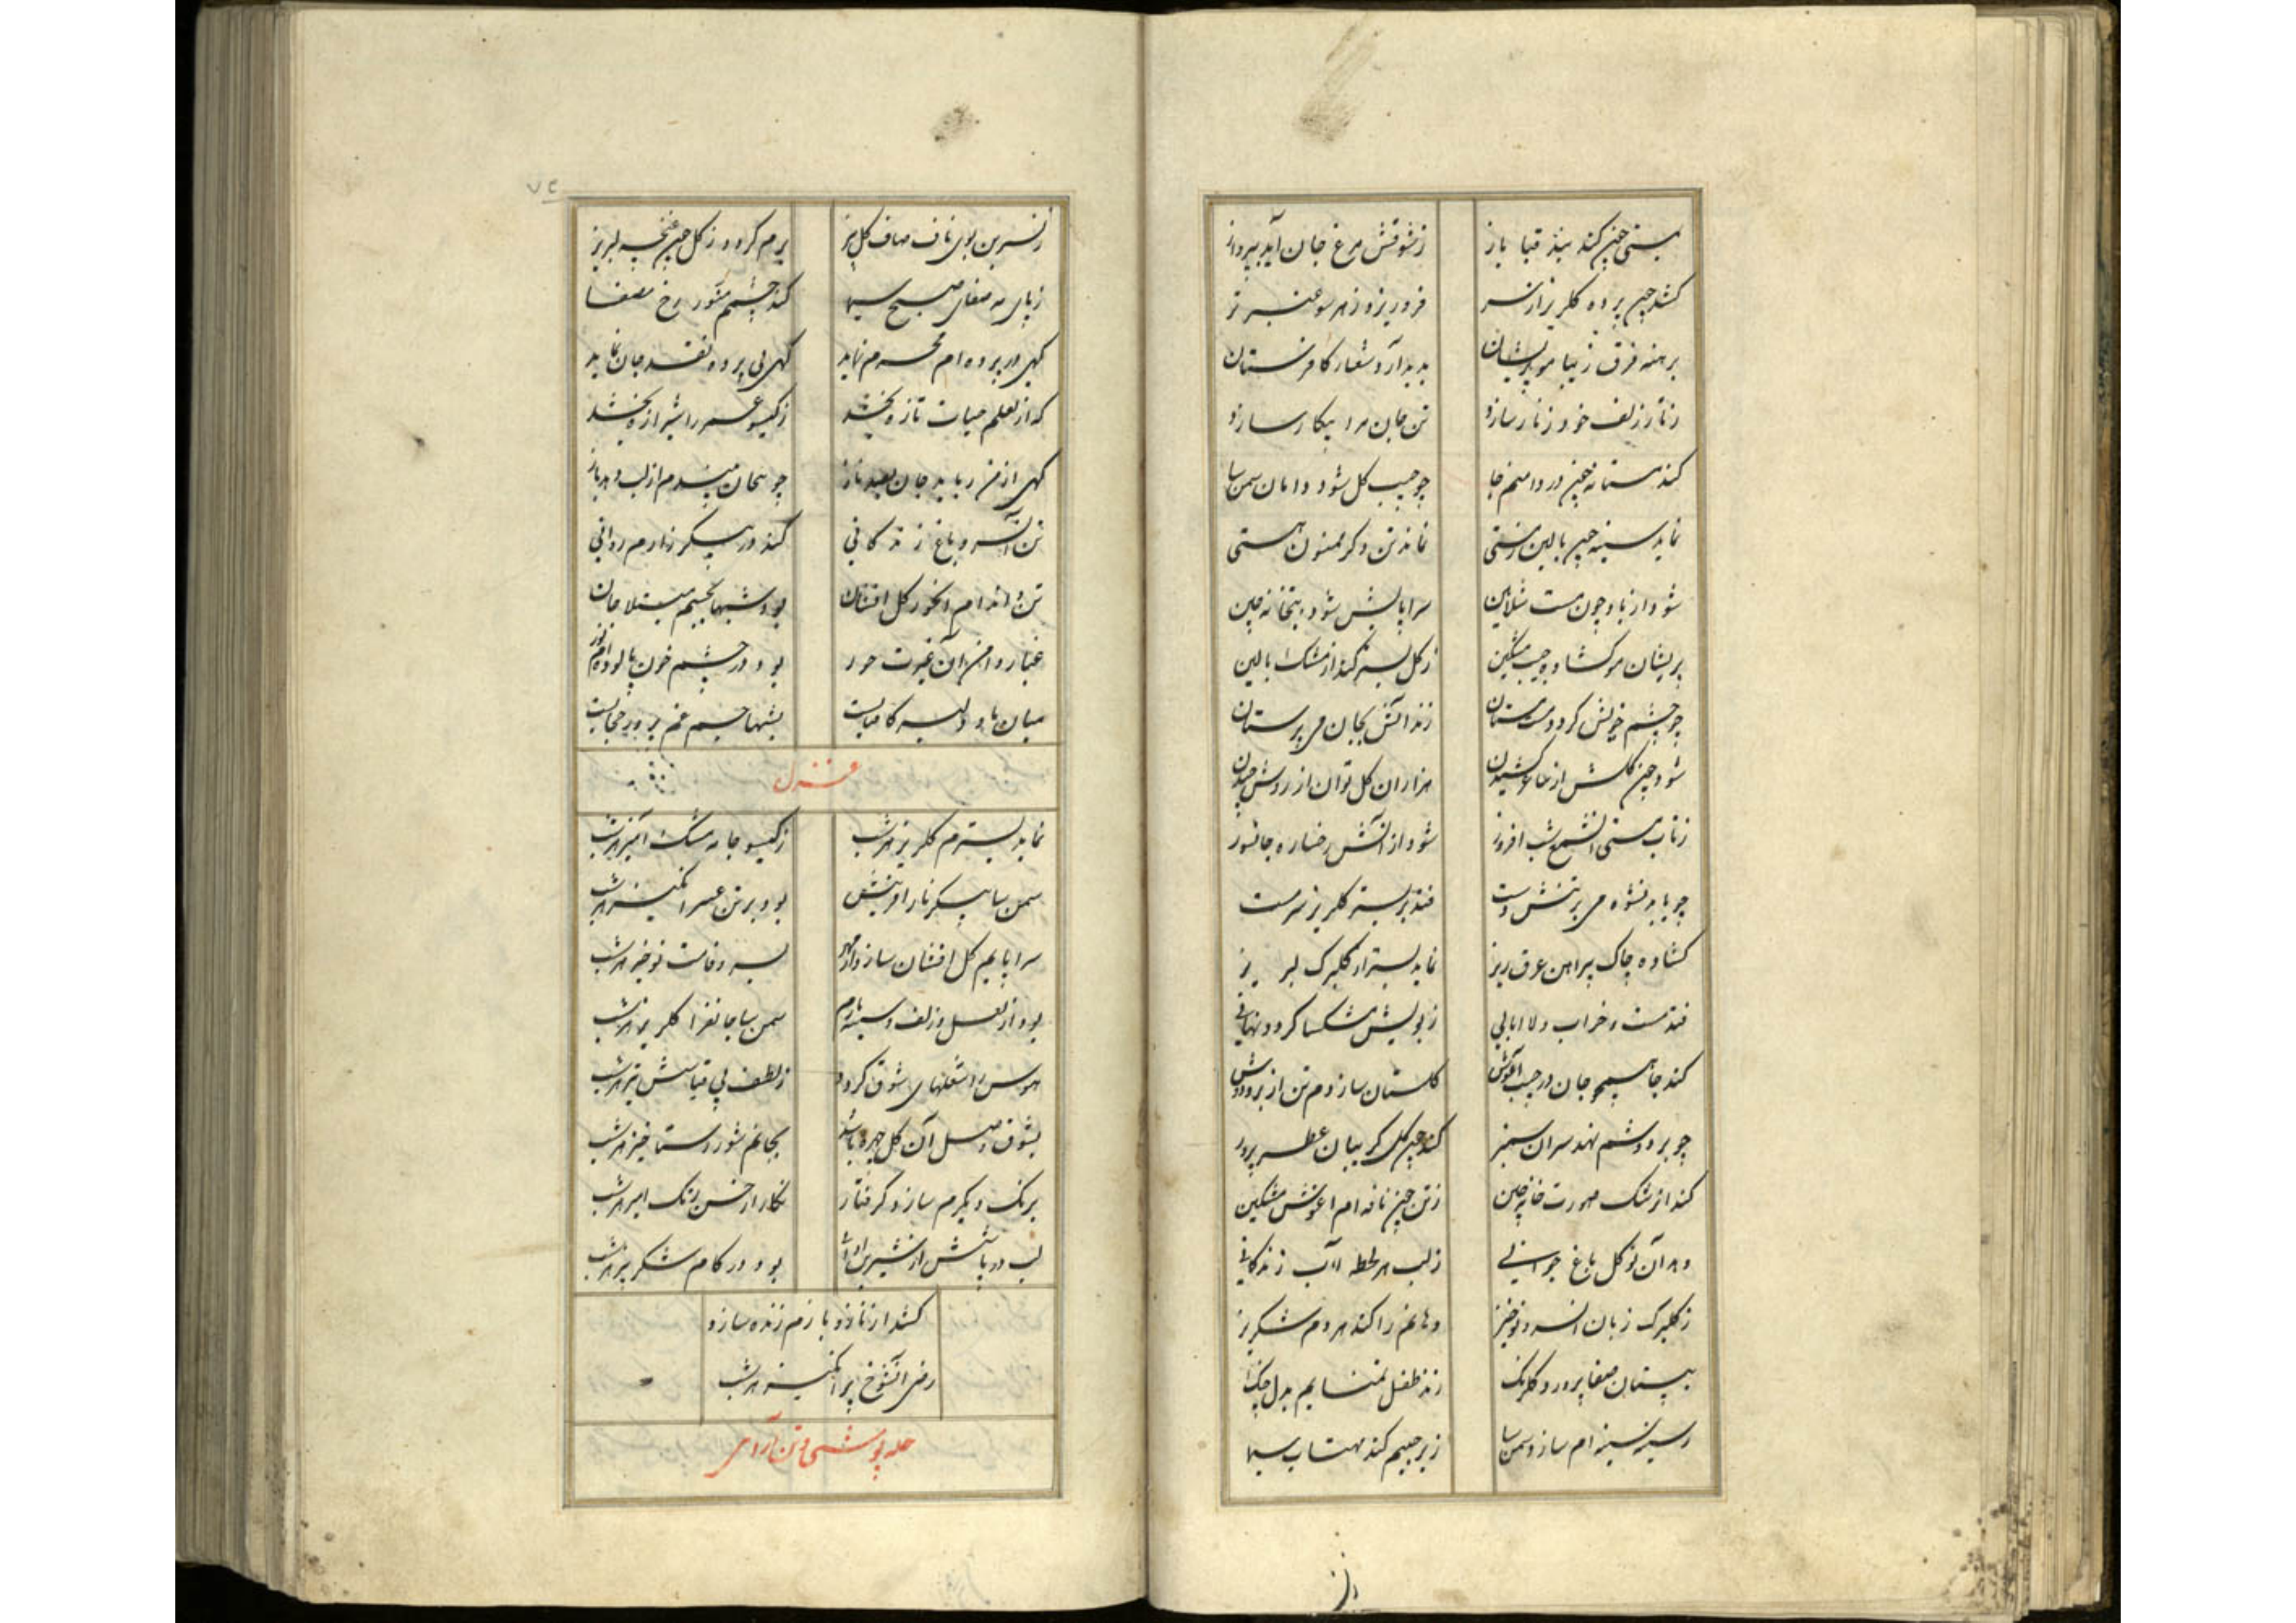 بمستی چون کند بند قبا باز زشوقش مرغ جان آید بپرواز
کشد چون پرده گلریز از سر فرو ریزد ز هر سو عنبر تر
برهنه فرق زیبا مو پریشان پدید آرد شعار کافرستان
ز تار زلف خود زنار سازد تن جان مرا بیکار سازد
کند مستانه چون در دامنم جا چو جیب گل شود دامان سمن سا
نماید سینه چون بالین مستی نماند تن دگر ممنون هستی
شود از باده چون مست سراپایش شود بتخانه چین
پریشان مو کشاده جیب مشکین ز گل بستر کند از مشک بالین
چو چشم خویش گردد مست مستان زند آتش بجان می پرستان
شود چون گلشن از هزاران گل توان از روش چیدن
ز تاب مستی آن شمع شب افروز شود از آتش رخساره جانسوز
چو یابد نشوه می بر تنش دست فتد بر بستر گلریز سرمست
کشاده چاک پیراهن عرق ریز نماید بستر از گلبرگ لبریز
فتد مست و خراب و لا ابالی ز بویش مشکسا گردد
کند جا همچو جان در جیب آغوش گلستان سازدم تن از بر و دوش
چو بر دوشم نهد سر آن سمنبر کند چون گل گریبان عطر پرور
کند از مشک صورت خانه چین ز تن چون نافه ام آغوش مشکین
دهد آن نو گل باغ جوانی ز لب هر لحظه آب زندگانی
ز گلبرگ زبان آن سرو نوخیز دهانم را کند هر دم شکر ریز
بپستان صفا پرور و گلرنگ زند طفل تمنایم بدل چنگ
ز سینه سینه ام سازد سمن سا ز بر جیبم کند مهتاب سیما
ز نسرین بوی ناف صاف گلبیز برم گردد ز گل چون غنچه لبریز
ز پای مه صفای صبح سیما کند چشم منور رخ مصفا
گهی در پرده ام محرم نماید گهی بی پرده نقد جان نماید
که از لعلم حیات تازه بخشد ز گیسو عمر را شیرازه بخشد
گهی از من رباید جان بصد ناز چو بیجان بیندم از لب دهد باز
تن آن سرو باغ زندگانی کند در پیکر زارم روانی
تن و اندام آن حور گل افشان بود شبها بجسم مبتلا جان
غبار دامن آن غیرت حور بود در چشم خون پالوده ام نور
میان ما و دلبر کامیابست بشبها جسم غم پرور حجابست
غزل
نماید بسترم گلریز هر شب ز گیسو جامه مشک آمیز هر شب
سمن سا پیکر نازآفرینش بود بر تن عمر انگیز هر شب
سراپایم گل افشان سازد از مهر بسرو قامت نوخیز هر شب
بود از لعل و زلف و سینه یارم سمن سا جانفزا گلریز هر شب
هوس را شعلهای شوق گردد ز لطف بی قیاسش تیز هر شب
بشوق وصل آن گل چهره باشد بجانم شور رستاخیز هر شب
برنگ دیگرم سازد گرفتار نگار از حسن رنگ آمیز هر شب
لب دریا از شیرین ادائی بود در کام شکر ریز هر شب
کشد از ناز و بازم زنده سازد
رضی آنشوخ پر انگیز هر شب
حله پوشی و تن آرای